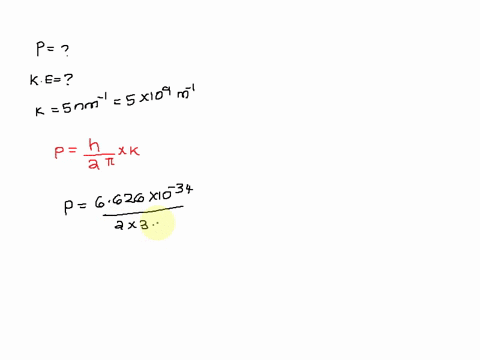 P = ?
K.E = ?
K = 5nm⁻¹ = 5 × 10⁹ m⁻¹
P = h/2π × K
P = 6.626 × 10⁻³⁴ / 2 × 3..